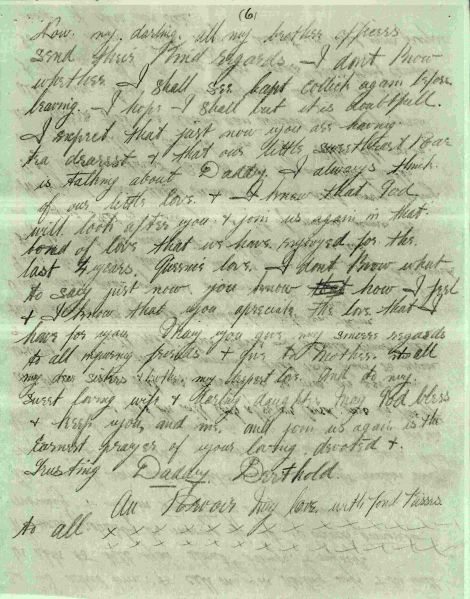 (6)
Now my darling all my brother officers
send their kind regards - I don't know
whether I shall see Capt Collick again before
leaving - I hope I shall but it is doubtfull.
I expect that just now you are having
tea dearest & that our little sweetheart
is talking about Daddy. I always think
of our little love & I know that God
will look after you & join us again in that
bond of love that we have enjoyed for the
last 4 years. Queenie love - I don't know what
to say just now you know how I feel
& I know that you apreciate the love that I
have for you Pray you give my sincere regards
to all enquiring friends & give to Mother & all
my dear sisters & brother my deepest love. And to my
sweet loving wife & darling daughter may God bless
& keep you and me and join us again is the
earnest prayer of your loving devoted &
Trusting Daddy Berthold.
Au Revoir my love with fond kisses
to all x x x x x x x x x x x x x x
x x x x x x x x x x x x